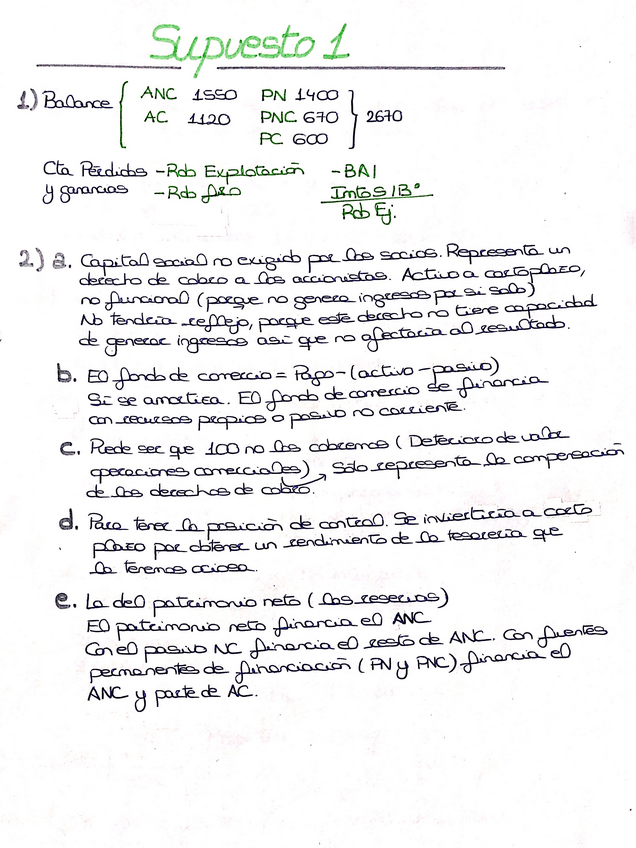 Supuesto 1
1.) Balance { ANC 1550 PN 1400 }
AC 1120 PNC 670 } 2670
PC 600
Cta Pérdidas - Rdo Explotación - BAI
y ganancias - Rdo fro Imtos/Bº
Rdo Ej.
2.) a. Capital social no exigido por los socios. Representa un
derecho de cobro a los accionistas. Activo a corto plazo,
no funcional (porque no genera ingresos por si solo)
No tendría reflejo, porque este derecho no tiene capacidad
de generar ingresos asi que no afectaria al resultado.
b. El fondo de comercio = Pago - (activo - pasivo)
Si se amortiza. El fondo de comercio se financia
con recursos propios o pasivo no corriente.
c. Puede ser que 100 no los cobremos (Deterioro de valor
operaciones comerciales) → Sólo representa la compensación
de los derechos de cobro.
d. Para tener la posición de control. Se invertiria a corto
plazo por obtener un rendimiento de la tesoreria que
la tenemos ociosa.
e. La del patrimonio neto (las reservas)
El patrimonio neto financia el ANC
Con el pasivo NC financia el resto de ANC. Con fuentes
permanentes de financiación (PN y PNC) financia el
ANC y parte de AC.